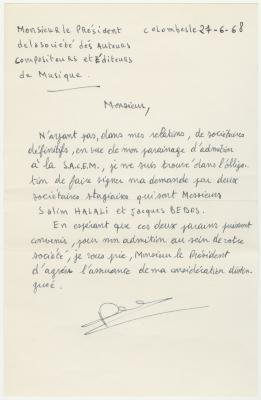 Monsieur le Président
Colombes le 24-6-68
de la société des Auteurs
compositeurs et Éditeurs
de Musique.
Monsieur,
N'ayant pas, dans mes relations, de sociétaires
définitifs, en vue de mon parainage d'admition
à la S.A.C.E.M., je me suis trouvé dans l'obliga-
tion de faire signer ma demande par deux
sociétaires stagiaires qui sont Messieurs
Salim HALALI et Jacques BEDOS.
En espérant que ces deux parains puissent
convenir, pour mon admition au sein de votre
société, je vous prie, Monsieur le Président
d'agréer l'assurance de ma considération distin-
guée.